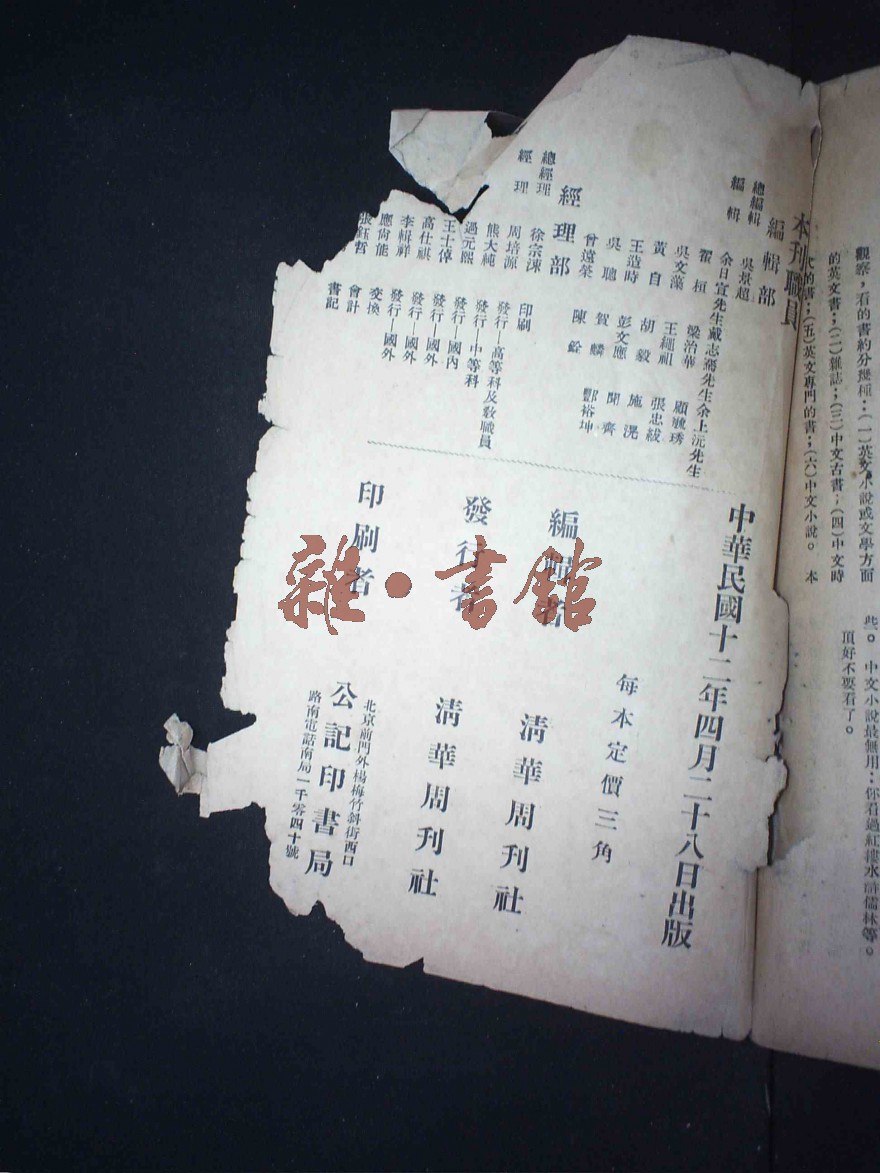 觀察，看的書約分幾種：（一）英文小說或文學方面
的英文書；（二）雜誌；（三）中文古書；（四）中文時
文的書；（五）英文專門的書；（六）中文小說。　本
些。　中文小說最無用：你看過紅樓水滸儒林等。
頂好不要看了。
本刊職員
編輯部
總編輯　吳景超
編輯　余日宣先生　戴志騫先生　余上沅先生
翟桓　梁治華　顧毓琇
吳文藻　王繩祖　張忠紱
黃自　胡毅　施滉
王造時　彭文應　聞齊
吳聰　賀麟　酆裕坤
曾遠榮　陳銓
經理部
總經理　徐宗涑
經理　周培源　印刷
熊大純　發行—高等科及教職員
過元熙　發行—中等科
王士倬　發行—國內
高仕祺　發行—國外
李輯祥　發行—國外
應尚能　交換　發行—國外
張鈺哲　會計
書記
中華民國十二年四月二十八日出版
每本定價三角
編輯者　清華周刊社
發行者　清華周刊社
印刷者　公記印書局
北京前門外楊梅竹斜街西口
路南電話南局一千零四十號
雜·書館